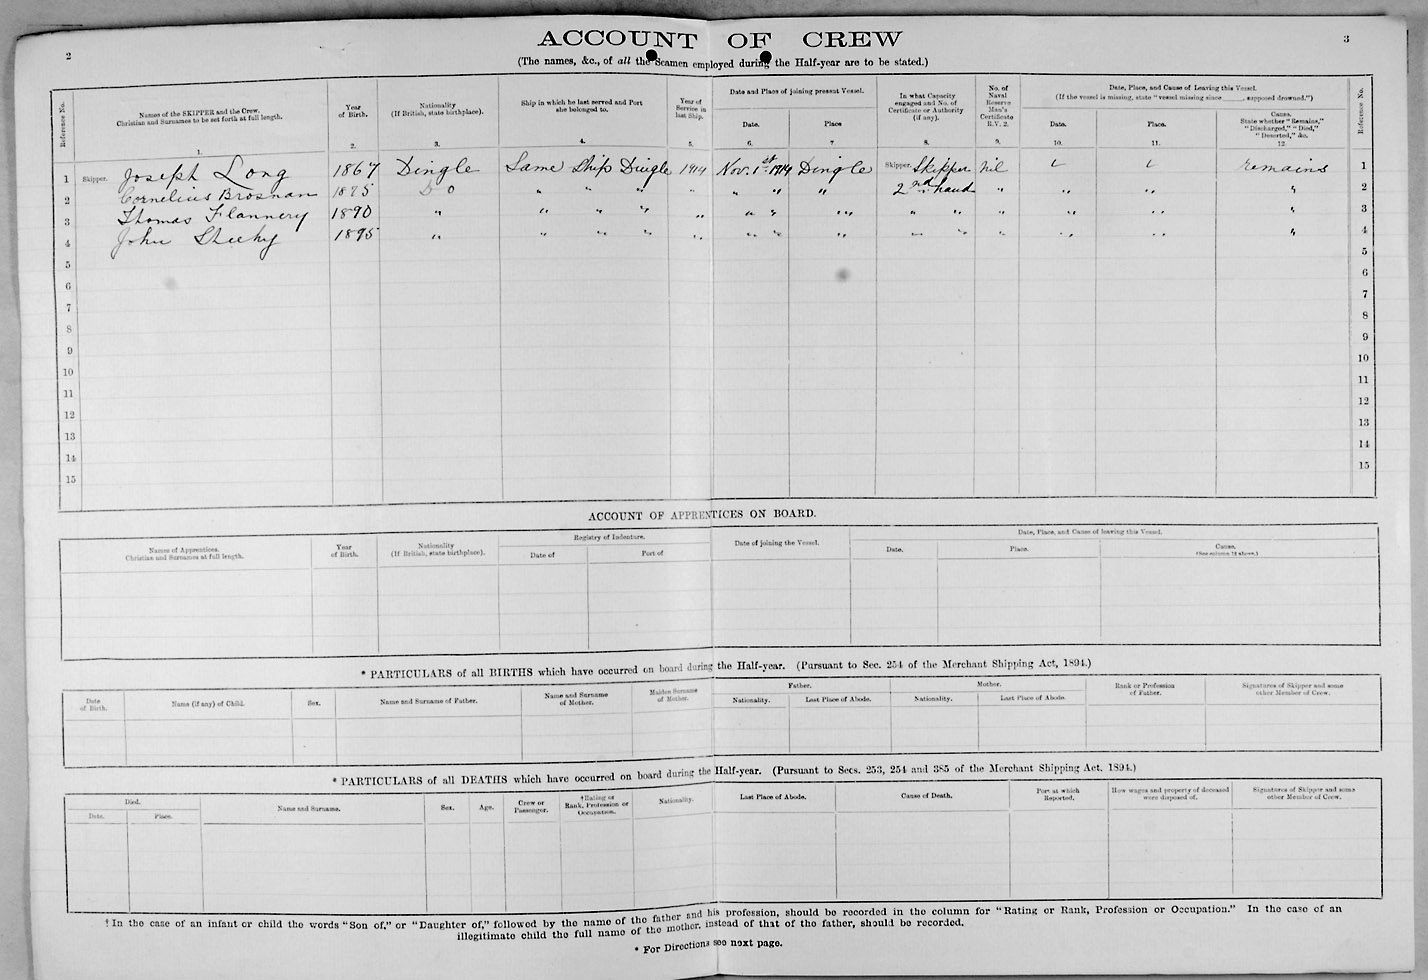 2
ACCOUNT OF CREW
3
(The names, &c., of all the Seamen employed during the Half-year are to be stated.)
Reference No.
Names of the SKIPPER and the Crew.
Christian and Surnames to be set forth at full length.
1.
Year of Birth.
2.
Nationality
(If British, state birthplace).
3.
Ship in which he last served and Port she belonged to.
4.
Year of Service in last Ship.
5.
Date and Place of joining present Vessel.
Date.
6.
Place
7.
In what Capacity engaged and No. of Certificate or Authority (if any).
8.
No. of Naval Reserve Man's Certificate R.V. 2.
9.
Date, Place, and Cause of Leaving this Vessel.
(If the vessel is missing, state "vessel missing since ____, supposed drowned.")
Date.
10.
Place.
11.
Cause.
State whether "Remains," "Discharged," "Died," "Deserted," &c.
12
Reference No.
1 Skipper. Joseph Long 1867 Dingle Same Ship Dingle 1914 Nov. 1st 1914 Dingle Skipper. Skipper nil remains 1
2 Cornelius Brosnan 1895 Do " " " " " " " 2nd hand " " " " 2
3 Thomas Flannery 1890 " " " " " " " " " " " " " " 3
4 John Sheehy 1895 " " " " " " " " " " " " " " 4
5 5
6 6
7 7
8 8
9 9
10 10
11 11
12 12
13 13
14 14
15 15
ACCOUNT OF APPRENTICES ON BOARD.
Names of Apprentices.
Christian and Surnames at full length.
Year of Birth.
Nationality
(If British, state birthplace).
Registry of Indenture.
Date of
Port of
Date of joining the Vessel.
Date, Place, and Cause of leaving this Vessel.
Date.
Place.
Cause.
(See column 12 above.)
* PARTICULARS of all BIRTHS which have occurred on board during the Half-year. (Pursuant to Sec. 254 of the Merchant Shipping Act, 1894.)
Date of Birth.
Name (if any) of Child.
Sex.
Name and Surname of Father.
Name and Surname of Mother.
Maiden Surname of Mother.
Father.
Nationality.
Last Place of Abode.
Mother.
Nationality.
Last Place of Abode.
Rank or Profession of Father.
Signatures of Skipper and some other Member of Crew.
* PARTICULARS of all DEATHS which have occurred on board during the Half-year. (Pursuant to Secs. 253, 254 and 385 of the Merchant Shipping Act. 1894.)
Died.
Date.
Place.
Name and Surname.
Sex.
Age.
Crew or Passenger.
†Rating or Rank, Profession or Occupation.
Nationality.
Last Place of Abode.
Cause of Death.
Port at which Reported.
How wages and property of deceased were disposed of.
Signatures of Skipper and some other Member of Crew.
† In the case of an infant or child the words "Son of," or "Daughter of," followed by the name of the father and his profession, should be recorded in the column for "Rating or Rank, Profession or Occupation." In the case of an
illegitimate child the full name of the mother, instead of that of the father, should be recorded.
* For Directions see next page.